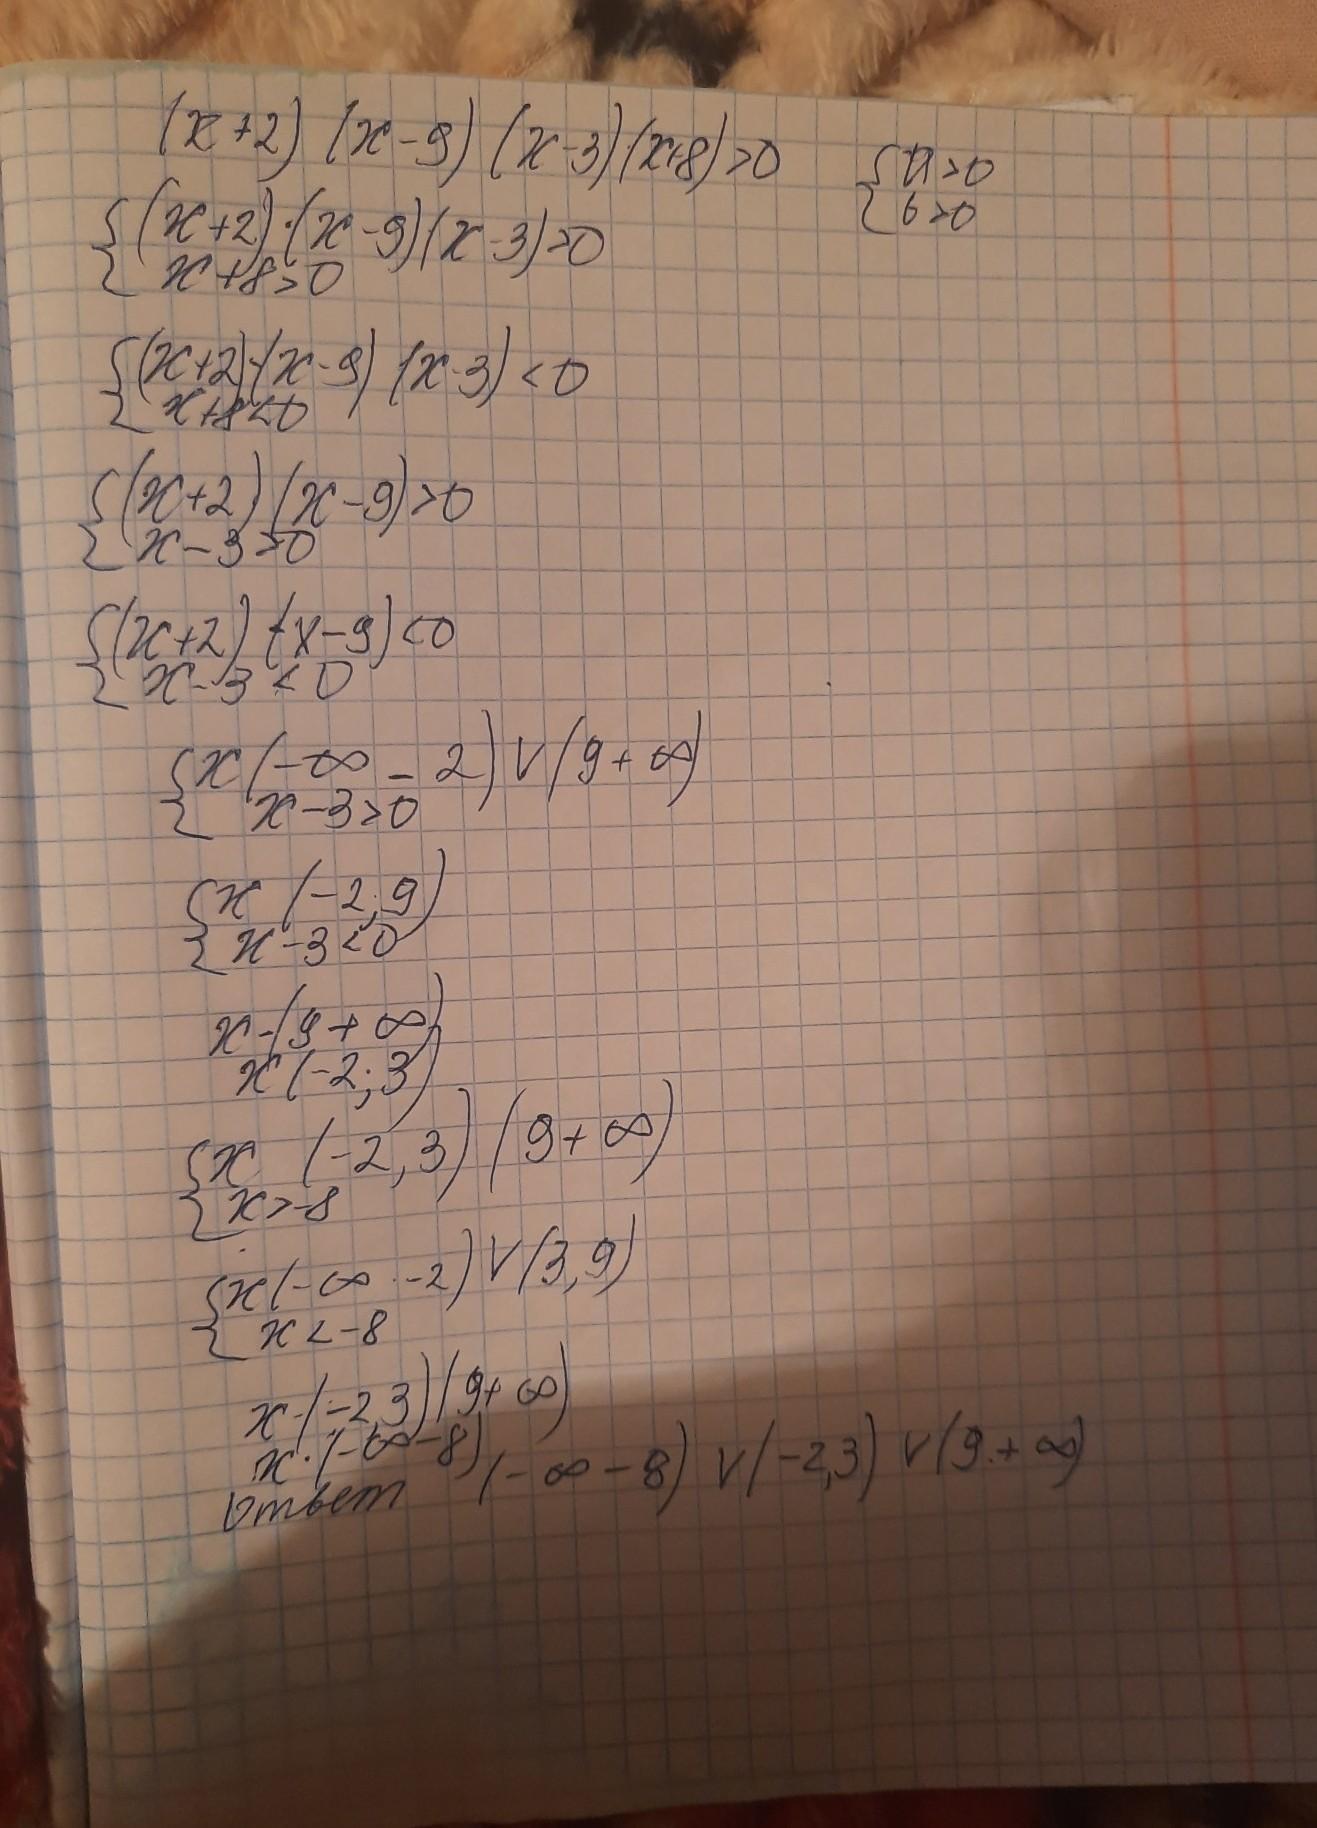 (x+2) (x-9) (x-3)(x+8)>0
{a>0
{b>0
{(x+2)·(x-9)(x-3)>0
{x+8>0
{(x+2)·(x-9) (x-3)<0
{x+8<0
{(x+2) (x-9)>0
{x-3>0
{(x+2) (x-9)<0
{x-3<0
{x(-∞ - 2) V (9+∞)
{x-3>0
{x (-2;9)
{x-3<0
x-(9+∞)
x(-2;3)
{x (-2,3) (9+∞)
{x>-8
{x(-∞ -2) V (3,9)
{x<-8
x-(-2,3) (9+∞)
x·(-∞-8)
Ответ (-∞-8) V (-2,3) V (9+∞)